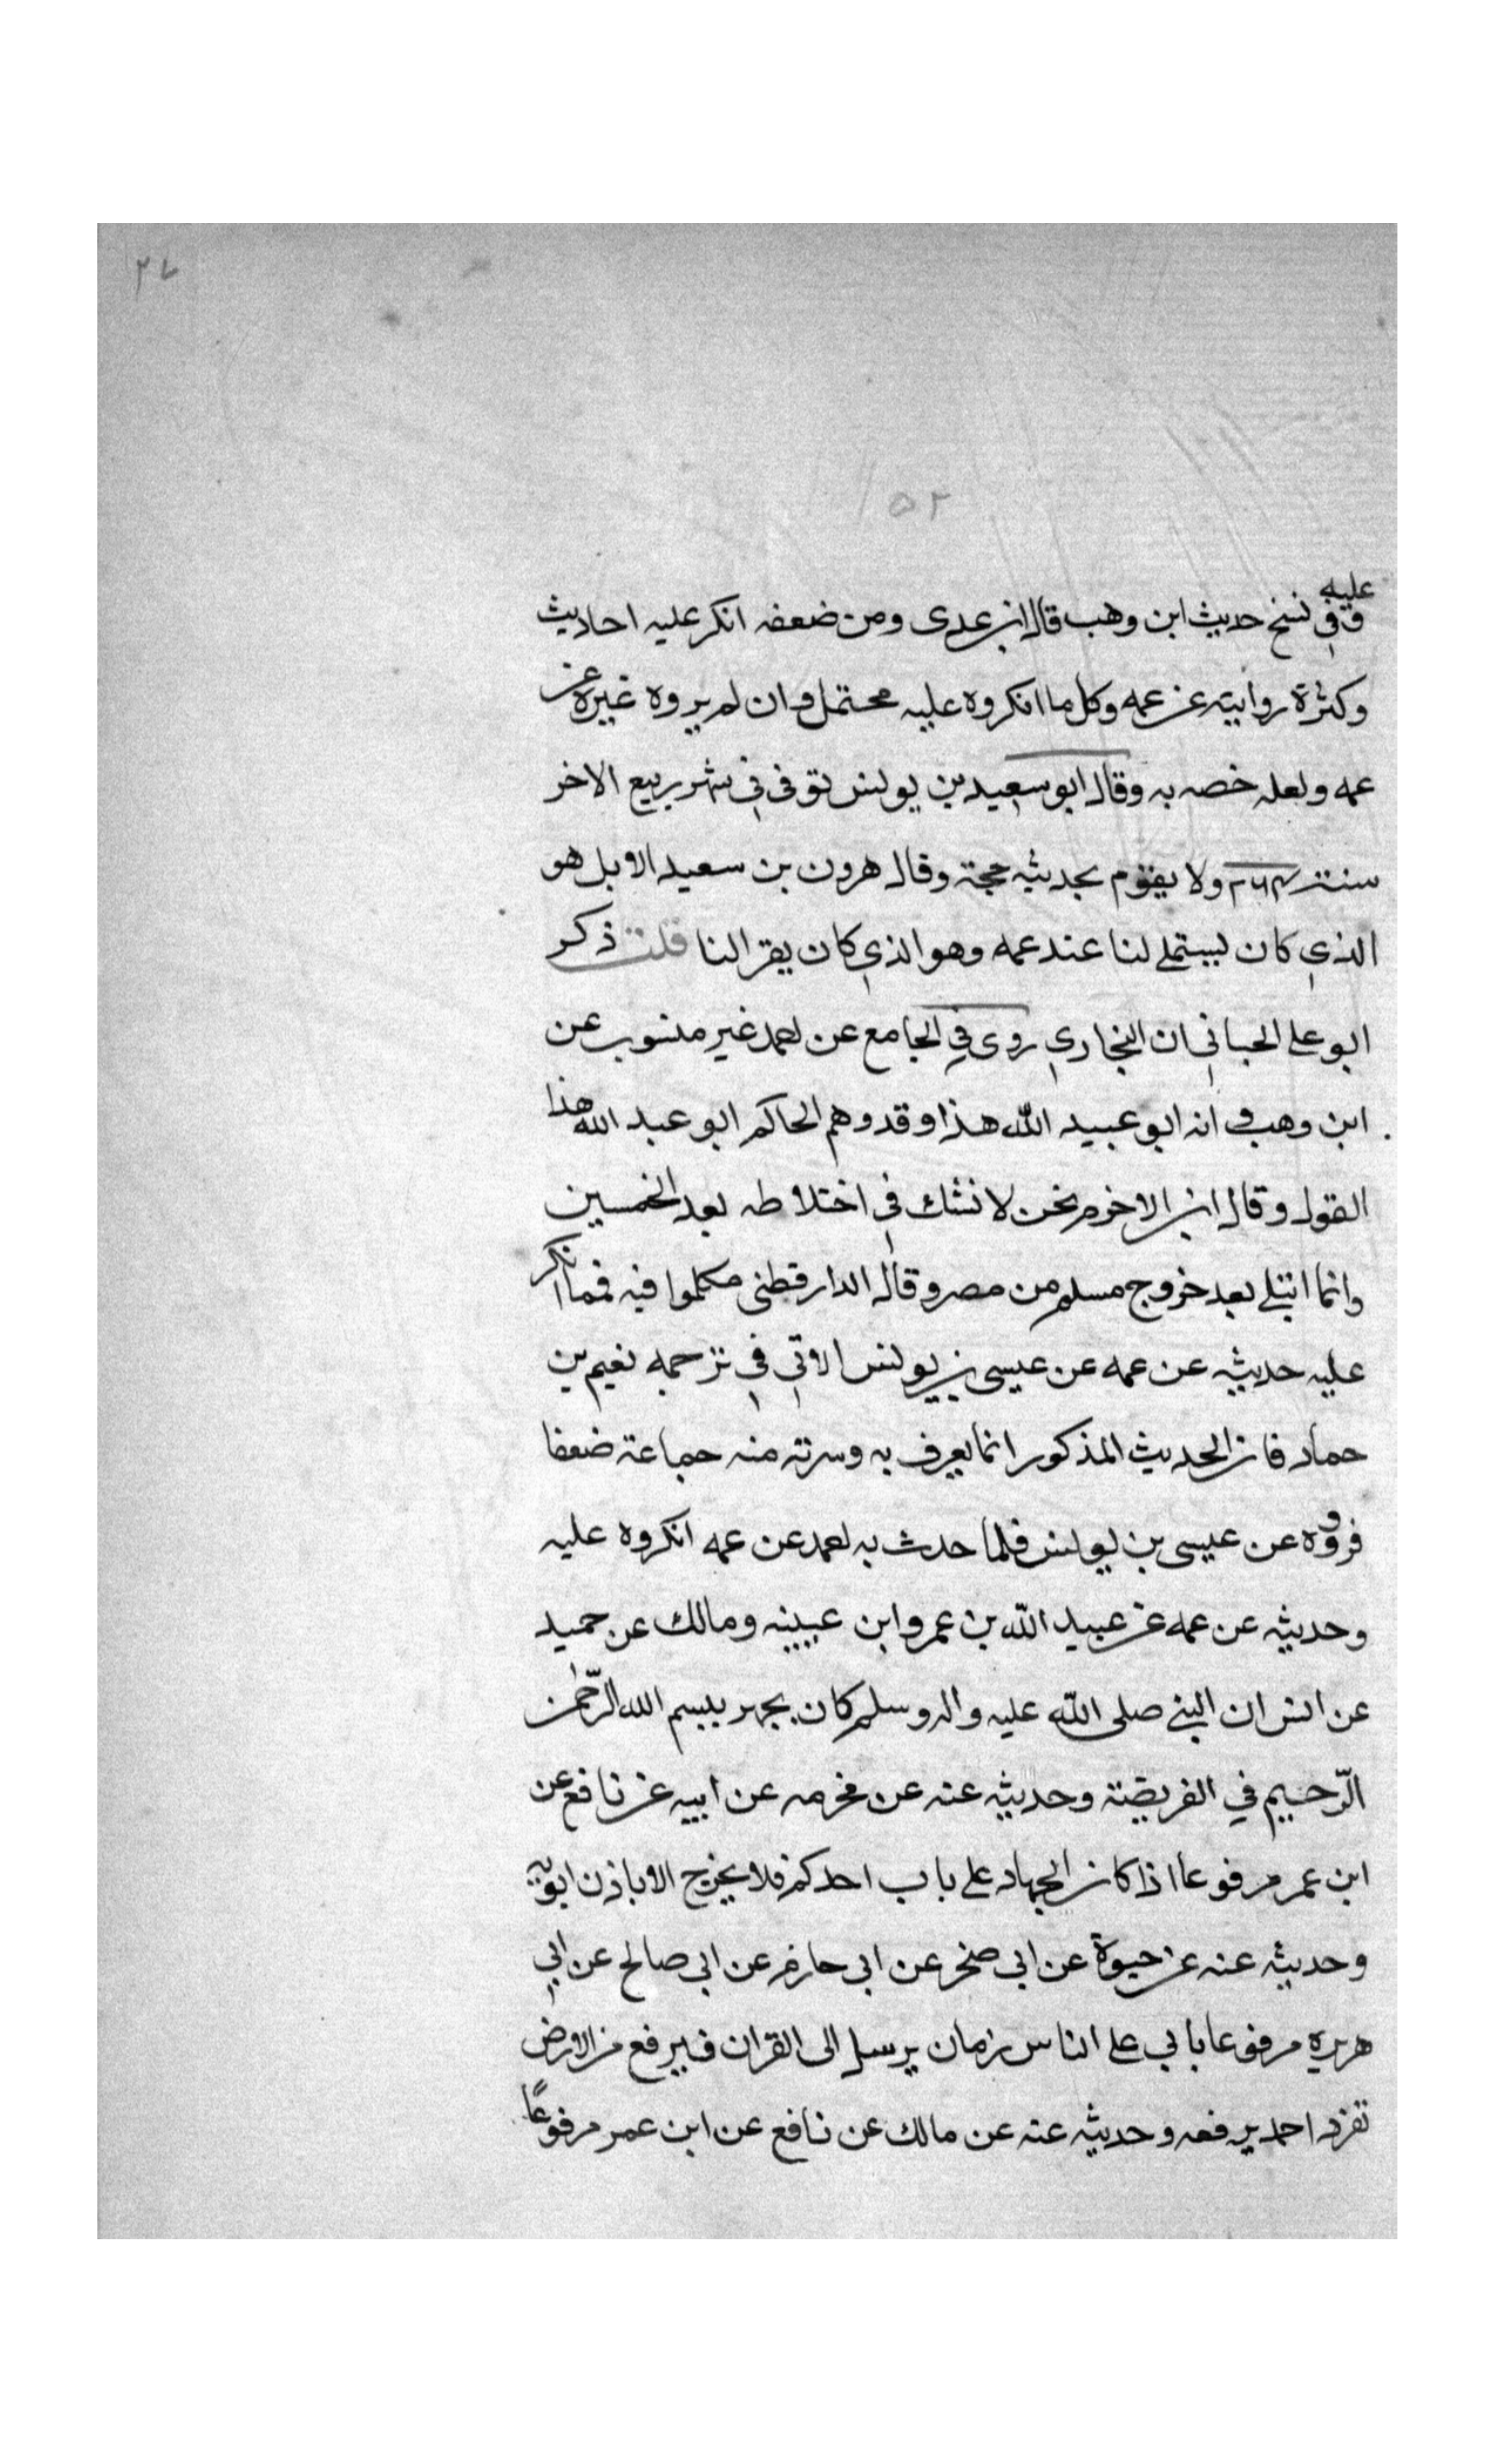 ٢٧
٥٢
عليه
وفي نسخ حديث ابن وهب قال ابن عدى ومن ضعفه انكر عليه احاديث
وكثرة روايته عن عمه وكل ما انكروه عليه محتمل وان لم يروه غيره عن
عمه ولعله خصه به وقال ابو سعيد بن يونس توفى في شهر ربيع الاخر
سنة ٢٦٤ ولا يقوم بحديثه حجة وقال هرون بن سعيد الابلى هو
الذي كان يستملى لنا عند عمه وهو الذي كان يقرا لنا قلت ذكر
ابو على الحبانى ان البخاري روى في الجامع عن احمد غير منسوب عن
ابن وهب انه ابو عبيد الله هذا وقد وهم الحاكم ابو عبد الله هذا
القول وقال ابن الاخرم نحن لا نشك في اختلاطه بعد الخمسين
وانما ابتلى بعد خروج مسلم من مصر وقال الدارقطنى تكلموا فيه فمما انكر
عليه حديثه عن عمه عن عيسى بن يونس الاتي في ترجمه نعيم بن
حماد فان الحديث المذكور انما يعرف به وسرقه منه جماعة ضعفا
فرووه عن عيسى بن يونس فلما حدث به احمد عن عمه انكروه عليه
وحديثه عن عمه عن عبيد الله بن عمر وابن عيينه ومالك عن حميد
عن انس ان النبي صلى الله عليه واله وسلم كان يجهر ببسم الله الرّحمن
الرّحيم في الفريضة وحديثه عنه عن مخرمه عن ابيه عن نافع عن
ابن عمر مرفوعا اذا كان الجهاد على باب احدكم فلا يخرج الا باذن ابويه
وحديثه عنه عن حيوة عن ابى صخر عن ابى حازم عن ابى صالح عن ابي
هريرة مرفوعا ياتي على الناس زمان يرسل الى القران فيرفع من الارض
تفرد احمد برفعه وحديثه عنه عن مالك عن نافع عن ابن عمر مرفوعًا